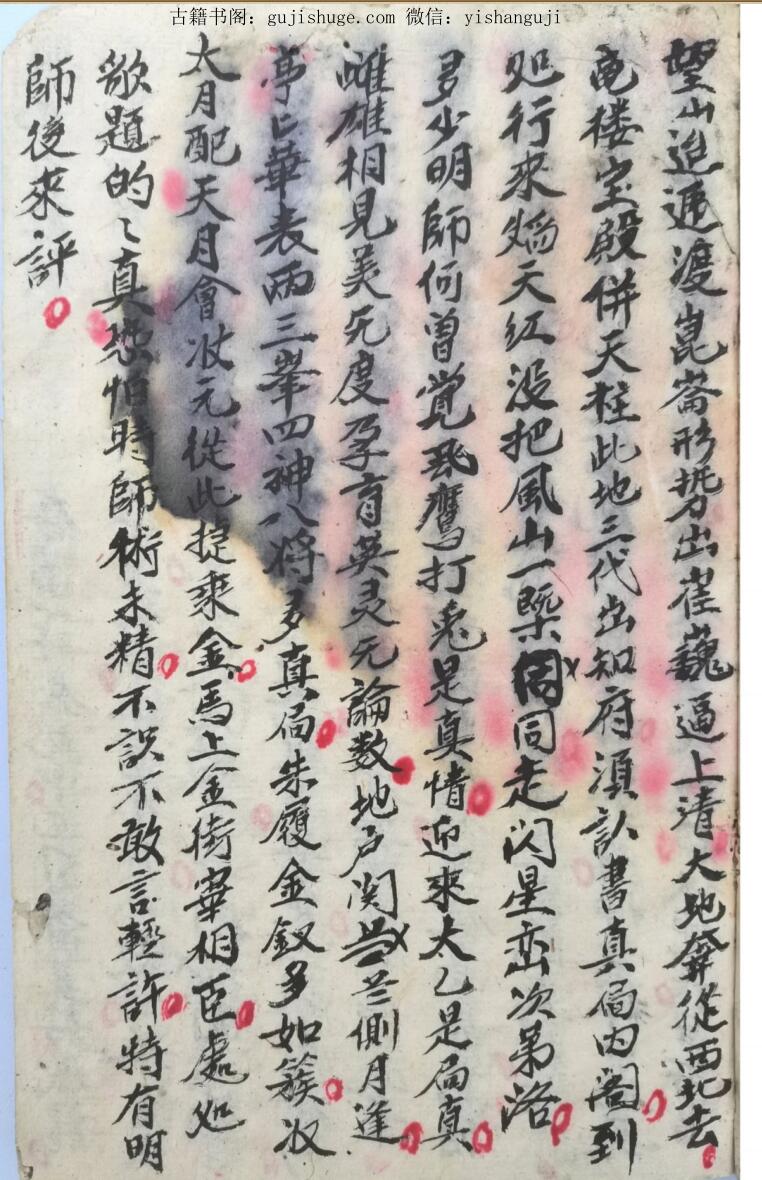 古籍书阁：gujishuge.com 微信：yishanguji
望山迢遞渡崑崙形势出崔巍逼上清大地奔從西北去
黾楼宝殿併天柱此地三代出知府湏認書真局内阁到
处行來焰天红没把風山一槩同走闪星峦次第洛
多少明師何曾覚飛鹰打兎是真情迎來太乙是局真
雌雄相見美无度孕育英灵无論数地户関兰側月逢
亭亡華表两三峯四神八将多真局朱履金釵多如簇狀
太月配天月會狀元從此掟乘金馬上金街宰相臣處処
歌題的〻真恐怕時師術未精不誤不敢言輕許特有明
師後來評